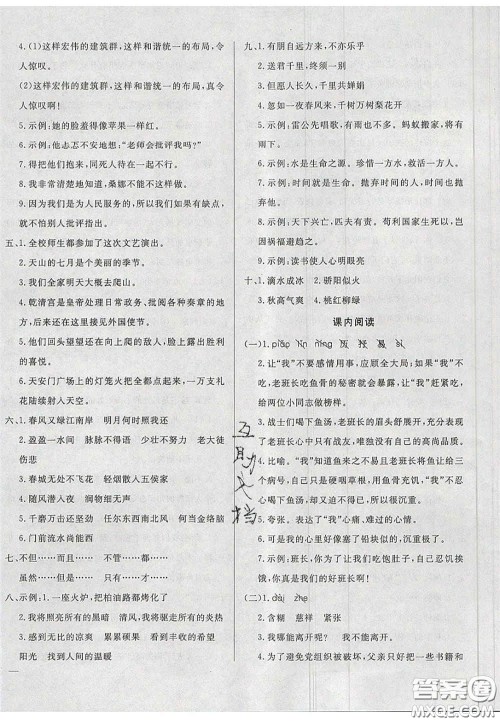 4. (1)这样宏伟的建筑群，这样和谐统一的布局，令
人惊叹。
(2)这样宏伟的建筑群，这样和谐统一的布局，真令
人惊叹啊！
5. 示例：她的脸羞得像苹果一样红。
6. 示例：他忐忑不安地想：“老师会批评我吗？”
7. 得把他们抱来，同死人待在一起不行。
8. 我非常清楚地知道，桑娜不能不这样做。
9. 因为我们是为人民服务的，所以我们如果有缺点，
就不怕别人批评指出。
五、1. 全校师生都参加了这次文艺演出。
2. 天山的七月是个美丽的季节。
3. 我们全家明天大概去爬山。
4. 乾清宫是皇帝处理日常政务、批阅各种奏章的地
方，后来还在这里接见外国使节。
5. 他们回头望望还在向上爬的敌人，脸上露出胜利
的喜悦。
6. 天安门广场上的灯笼火把全都点起来，一万支礼
花陆续射入天空。
六、1. 春风又绿江南岸 明月何时照我还
2. 盈盈一水间 脉脉不得语 少壮不努力 老大徒
伤悲
3. 春城无处不飞花 轻烟散入五侯家
4. 随风潜入夜 润物细无声
5. 千磨万击还坚劲 任尔东西南北风 何当金络脑
6. 门前流水尚能西
七、不但……而且…… 不管……都……
虽然……但是…… 只有……才……
八、示例：1. 一座火炉，把柏油路都烤化了
2. 我将照亮所有的黑暗 清风，我将驱走所有的炎热
3. 感受到无比的凉爽 累累硕果 看到丰收的希望
阳光 找到人间的温暖
九、1. 有朋自远方来，不亦乐乎
2. 送君千里，终须一别
3. 但愿人长久，千里共婵娟
4. 忽如一夜春风来，千树万树梨花开
5. 示例：雷公先唱歌，有雨也不多。蚂蚁搬家，将有
雨下。
6. 示例：水是生命之源。珍惜一方水，救活一方人。
7. 示例：时间就是生命。抛弃时间的人，时间也抛
弃他。
8. 示例：天下兴亡，匹夫有责。苟利国家生死以，岂
因祸福避趋之。
9. 示例：读书使人心明眼亮
十、1. 滴水成冰 2. 骄阳似火
3. 秋高气爽 4. 桃红柳绿
课内阅读
2. 让“我”不要感情用事，应顾全大局；如果“我”不吃
鱼，老班长吃鱼骨的秘密就会暴露，让“我”赶紧吃，
给两位小同志做榜样。
3. 战士们喝下鱼汤，老班长的眉头舒展开，充分表现
了老班长心中有战士，关心战士胜过关心自己。
4. 比喻。“我”知道鱼来之不易且老班长舍不得吃，
只是自己偷偷地硬咽草根，用鱼骨充饥，我们却喝下
鱼汤，感到自己不应该这样，所以很沉重。
5. 夸张。表达了“我”心痛，难过，激动的心情。
6. 好像我的心都凝了铅块似的，沉重极了。
7. 示例：好班长，您为了让我们吃饱肚子，自己忍饥
挨饿，我们是您的好班长啊！
(二)1. dài zhe
2. 含糊 慈祥 紧张
3. 我哪能离开呢？ 我不能离开。
4. 为了避免党组织被破坏，父亲只好把一些书籍和
互助文档
答案圈
MXQE.COM